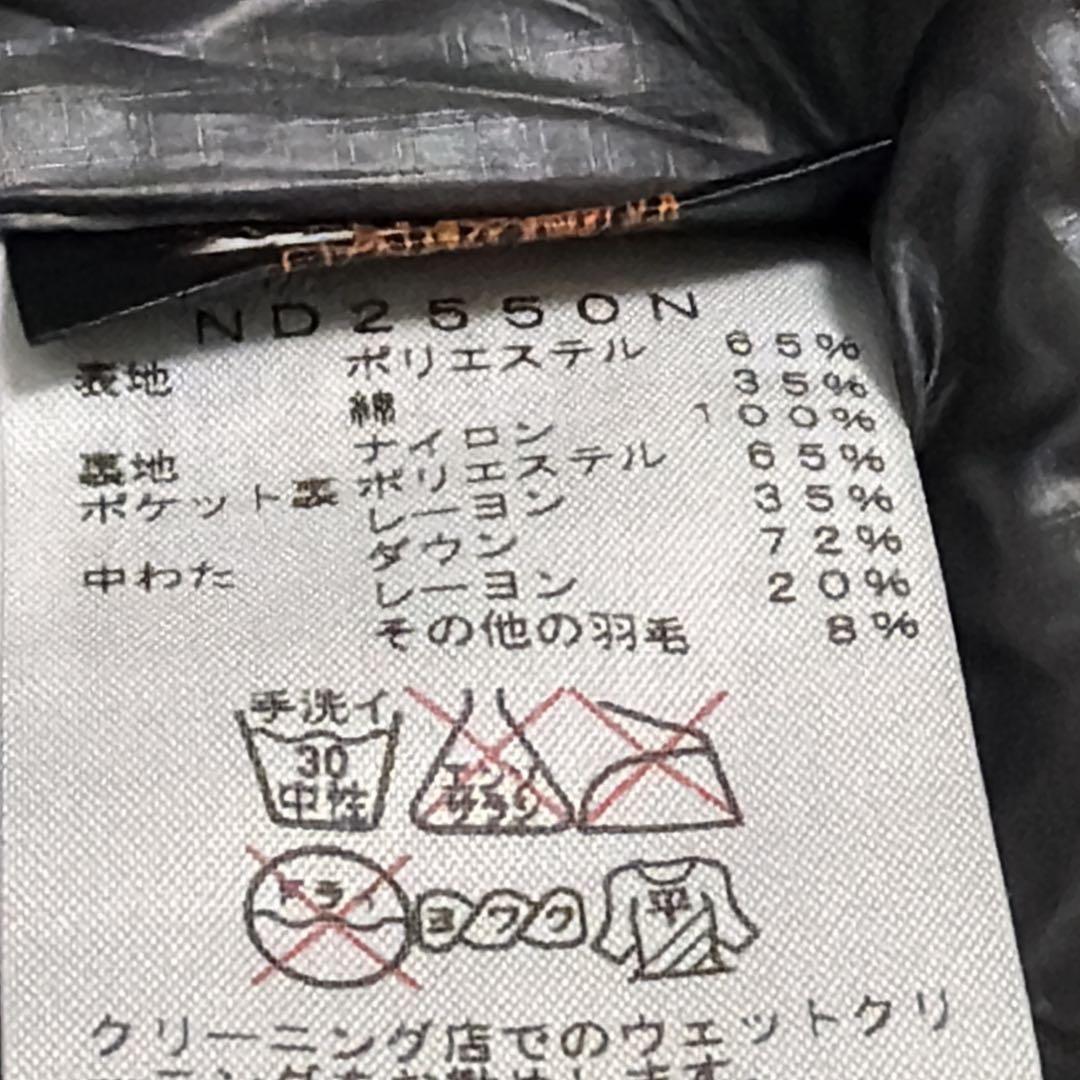 ND2550N
表地 ポリエステル 65%
綿 35%
裏地 ナイロン 100%
ポケット裏 ポリエステル 65%
レーヨン 35%
中わた ダウン 72%
レーヨン 20%
その他の羽毛 8%
手洗イ
30
中性
エンソ
サラシ
ドライ
ヨワク
平
クリーニング店でのウェットクリ
ーニングをお勧めします。